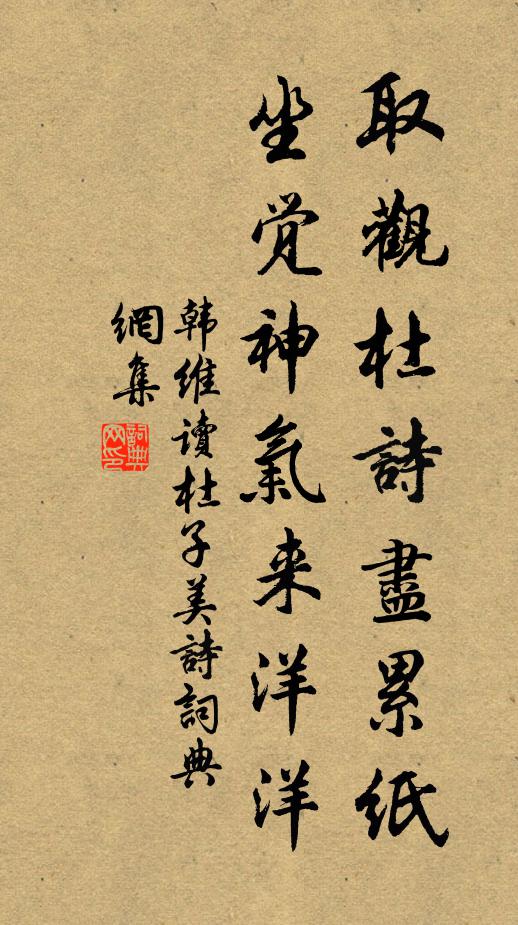 取觀杜詩盡累紙
坐觉神氣来洋洋
韩维讀杜子美詩詞典
網集
詞典
网印